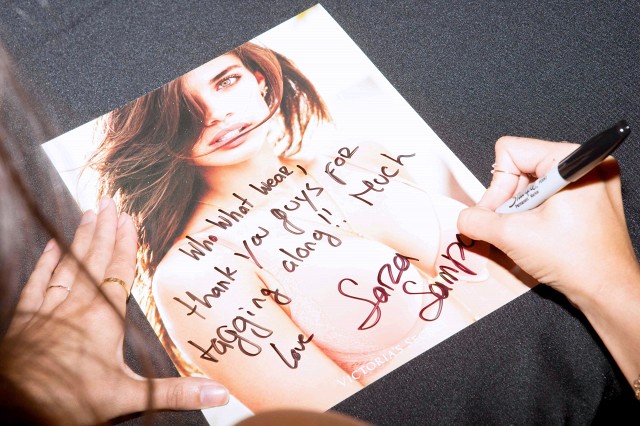 Who What Wear,
thank you guys FOR
tagging along!! Much
Love Sara
Sampa
VICTORIA'S